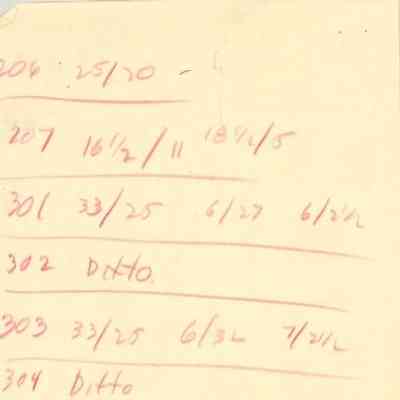 206 25/20 -
207 16 1/2 / 11 18 1/2/5
301 33/25 6/27 6/2 1/2
302 Ditto
303 33/25 6/32 7/2 1/2
304 Ditto